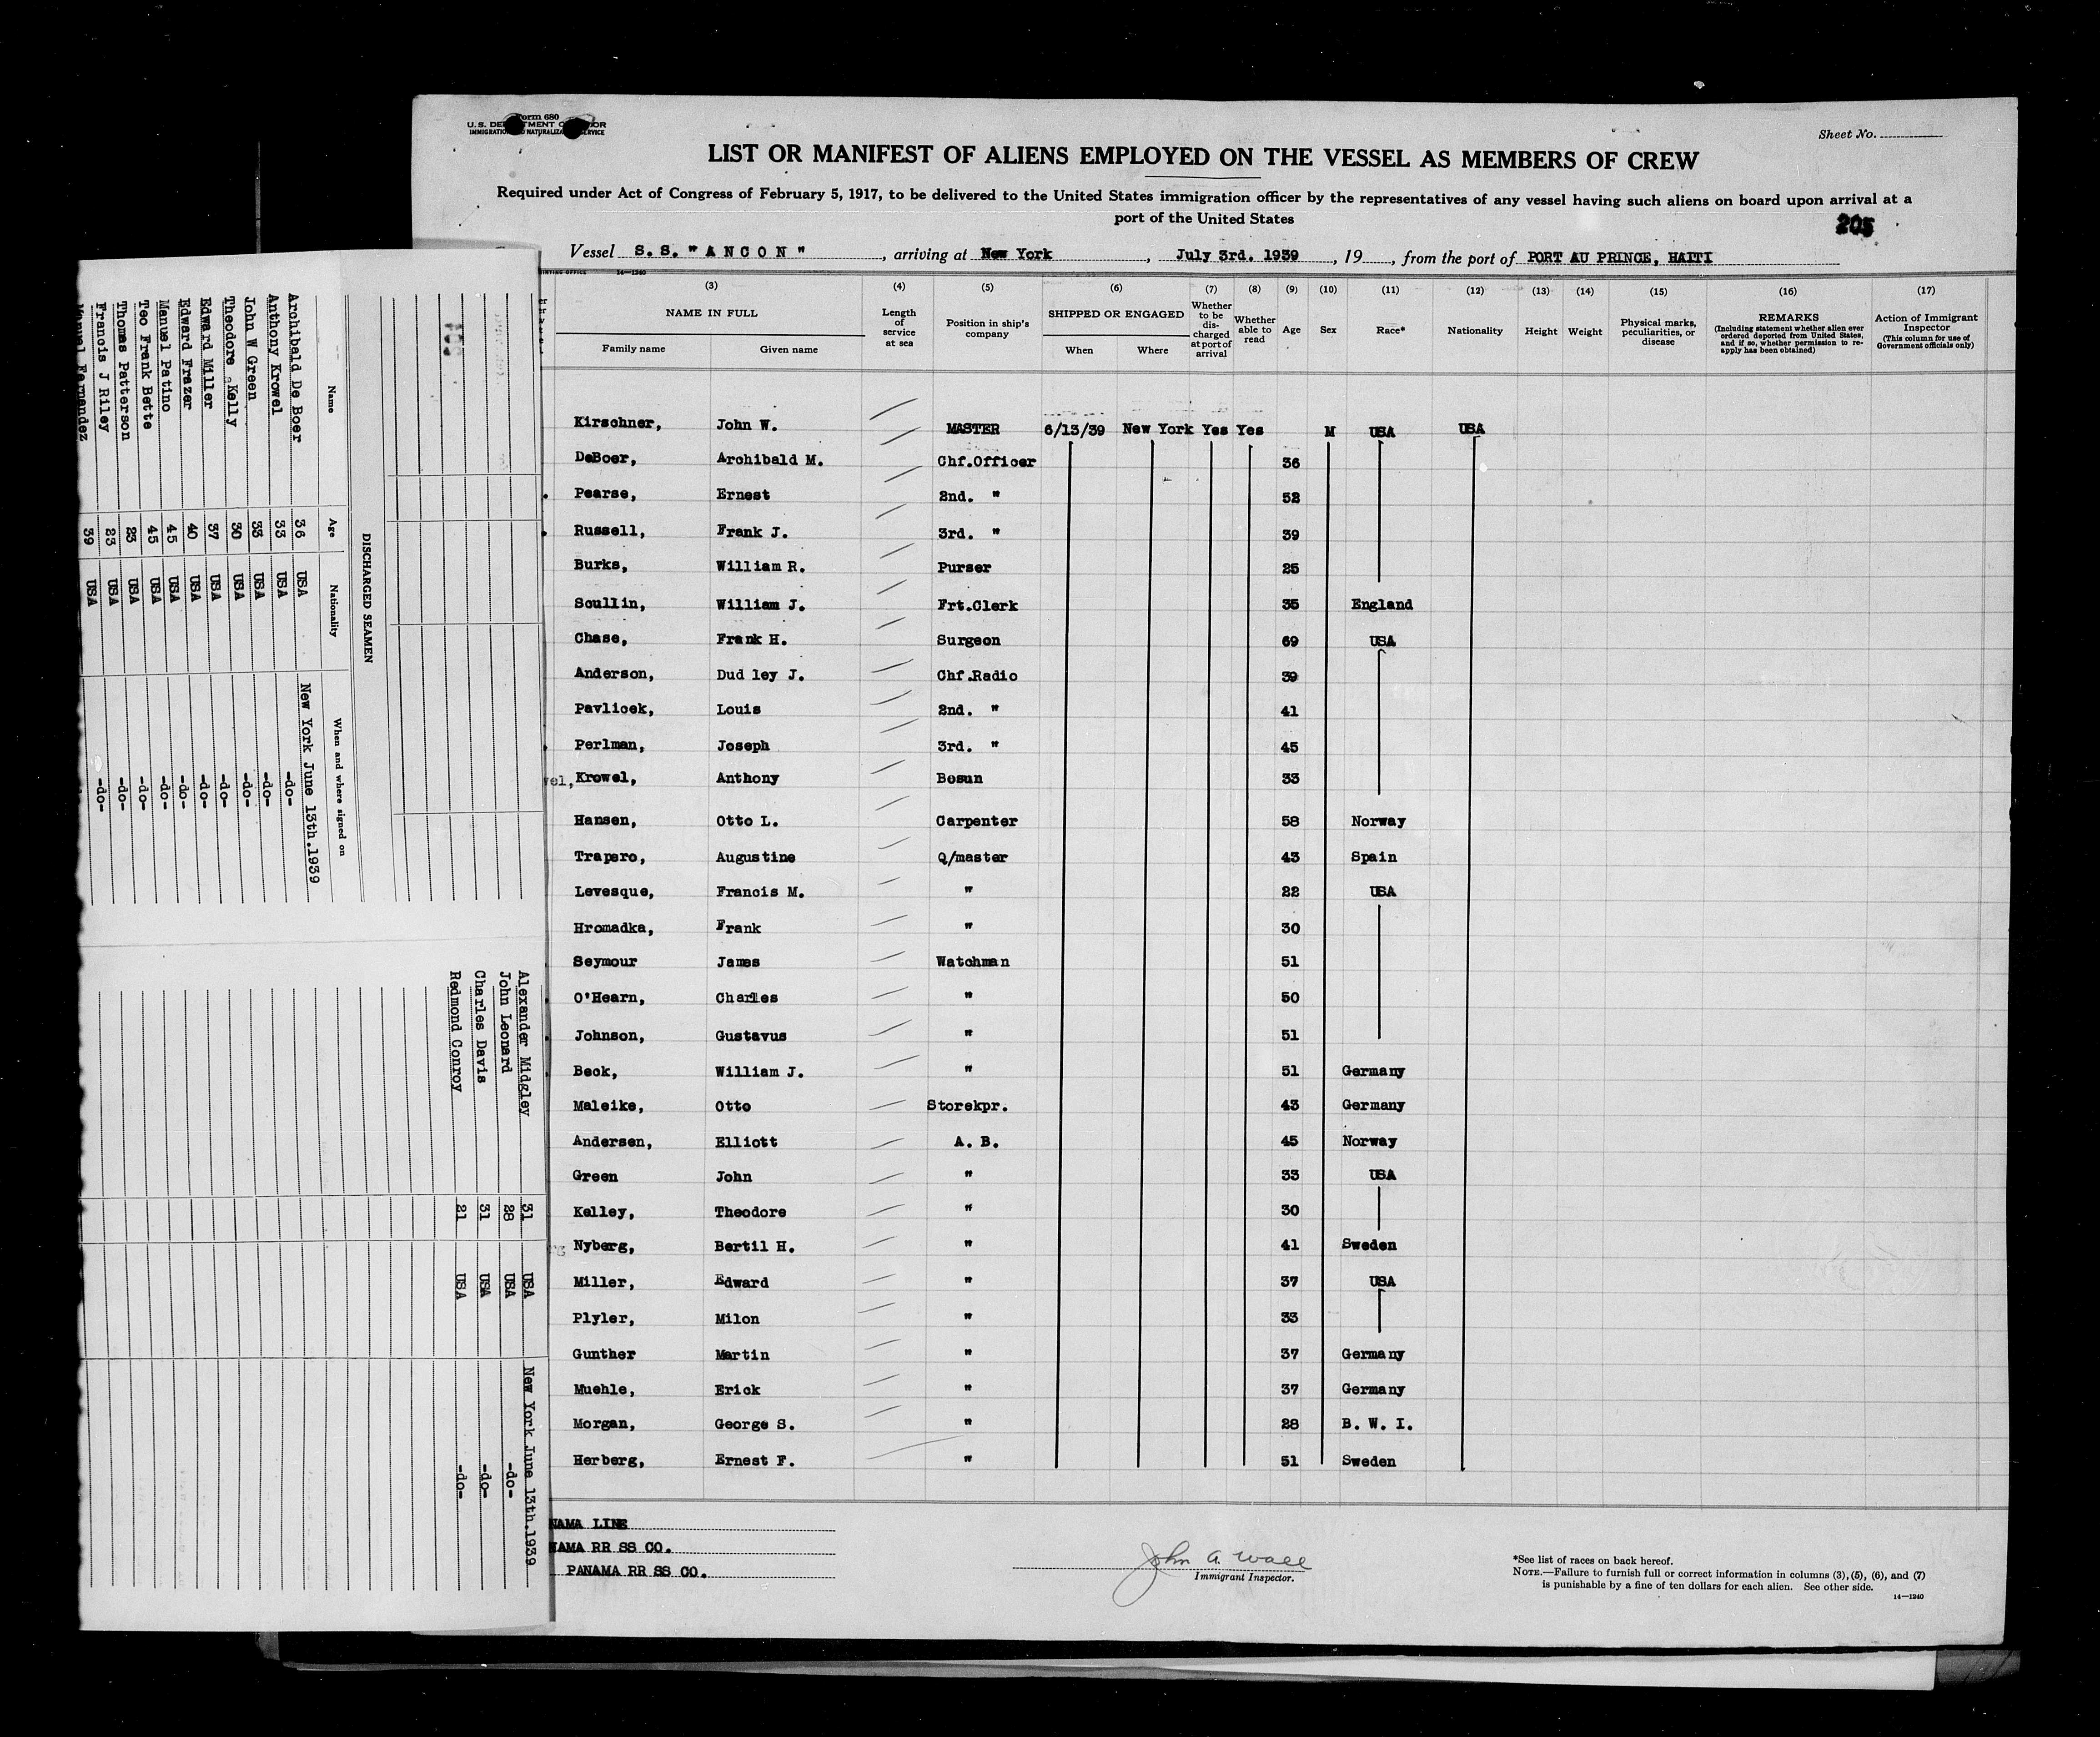 Form 680
U.S. DEPARTMENT OF LABOR
IMMIGRATION AND NATURALIZATION SERVICE
Sheet No.
LIST OR MANIFEST OF ALIENS EMPLOYED ON THE VESSEL AS MEMBERS OF CREW
Required under Act of Congress of February 5, 1917, to be delivered to the United States immigration officer by the representatives of any vessel having such aliens on board upon arrival at a
port of the United States
205
Vessel S.S. "ANCON", arriving at New York, July 3rd. 1939, 19, from the port of PORT AU PRINCE, HAITI
14—1240
(3) (4) (5) (6) (7) (8) (9) (10) (11) (12) (13) (14) (15) (16) (17)
NAME IN FULL Family name Given name Length of service at sea Position in ship's company SHIPPED OR ENGAGED When Where Whether to be discharged at port of arrival Whether able to read Age Sex Race* Nationality Height Weight Physical marks, peculiarities, or disease REMARKS (Including statement whether alien ever ordered deported from United States, and if so, whether permission to re-apply has been obtained) Action of Immigrant Inspector (This column for use of Government officials only)
Kirschner, John W. MASTER 6/13/39 New York Yes Yes M USA USA
DeBoer, Archibald M. Chf.Officer 36
Pearse, Ernest 2nd. " 52
Russell, Frank J. 3rd. " 39
Burks, William R. Purser 25
Scullin, William J. Frt.Clerk 35 England
Chase, Frank H. Surgeon 69 USA
Anderson, Dud ley J. Chf.Radio 39
Pavlicek, Louis 2nd. " 41
Perlman, Joseph 3rd. " 45
Krowel, Anthony Bosun 33
Hansen, Otto L. Carpenter 58 Norway
Trapero, Augustine Q/master 43 Spain
Levesque, Francis M. " 22 USA
Hromadka, Frank " 30
Seymour James Watchman 51
O'Hearn, Charles " 50
Johnson, Gustavus " 51
Beck, William J. " 51 Germany
Maleike, Otto Storekpr. 43 Germany
Andersen, Elliott A. B. 45 Norway
Green John " 33 USA
Kelley, Theodore " 30
Nyberg, Bertil H. " 41 Sweden
Miller, Edward " 37 USA
Plyler, Milon " 33
Gunther Martin " 37 Germany
Muehle, Erick " 37 Germany
Morgan, George S. " 28 B. W. I.
Herberg, Ernest F. " 51 Sweden
NAMA LINE
NAMA RR SS CO.
PANAMA RR SS CO.
John A. Wall
Immigrant Inspector.
*See list of races on back hereof.
NOTE.—Failure to furnish full or correct information in columns (3), (5), (6), and (7)
is punishable by a fine of ten dollars for each alien. See other side.
14—1240
DISCHARGED SEAMEN
Name Age Nationality When and where signed on
Archibald De Boer 36 USA New York June 13th.1939
Anthony Krowel 33 USA -do-
John W Green 33 USA -do-
Theodore Kelly 30 USA -do-
Edward Miller 37 USA -do-
Edward Frazer 40 USA -do-
Manuel Patino 45 USA -do-
Teo Frank Bette 45 USA -do-
Thomas Patterson 23 USA -do-
Francis J Riley 23 USA -do-
Manuel Fernandez 39 USA
Alexander Midgley 31 USA New York June 13th.1939
John Leonard 28 USA -do-
Charles Davis 31 USA -do-
Redmond Conroy 21 USA -do-